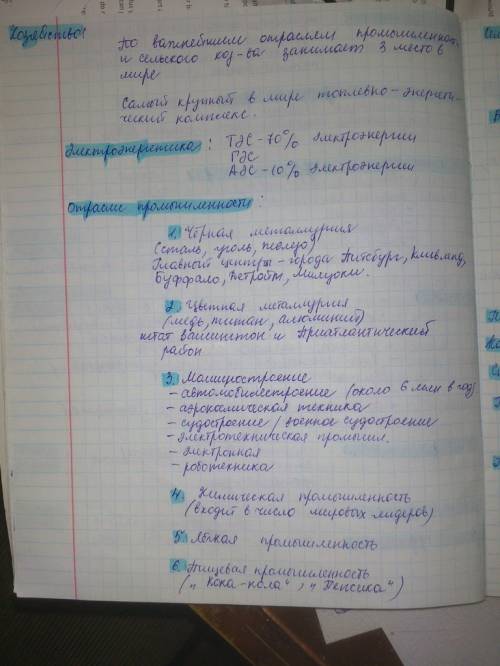 Хозяйство:
По важнейшим отраслям промышленност.
и сельского хоз-ва занимает 3 место в
мире
Самый крупный в мире топливно-энергети-
ческий комплекс.
Электроэнергетика: ТЭС - 70% электроэнергии
ГЭС
АЭС - 10% электроэнергии
Отрасли промышленности:
1. Чёрная металлургия
(сталь, уголь, железо)
Главный центры - города Питсбург, Кливленд,
Буффало, Детройт, Милуоки.
2. Цветная металлургия
(медь, титан, алюминий)
штат Вашингтон и Приатлантический
район
3. Машиностроение
- автомобилестроение (около 6 млн в год)
- аэрокосмическая техника
- судостроение / военное судостроение
- электротехническая промышл.
- электронная
- робототехника
4. Химическая промышленность
(входит в число мировых лидеров)
5. Лёгкая промышленность
6. Пищевая промышленность
(„Кока-кола“, „Пепсика“)